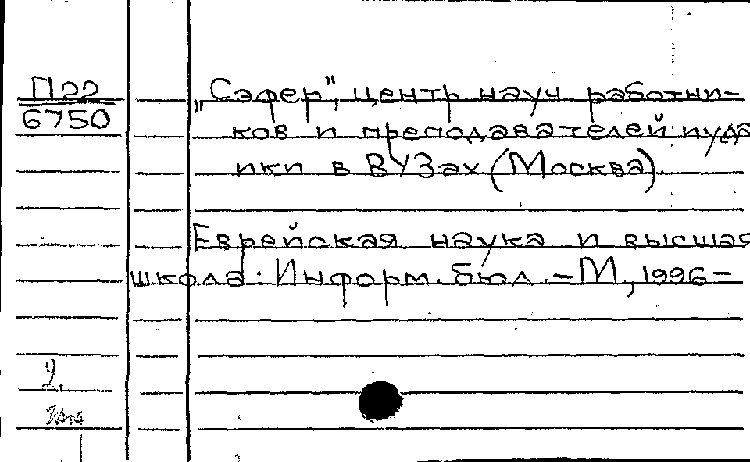 П22
6750
„Сэфер", центр науч работни-
ков и преподавателей иуда
ики в ВУЗах (Москва)
Еврейская наука и высшая
школа: Информ. бюл. – М, 1996–